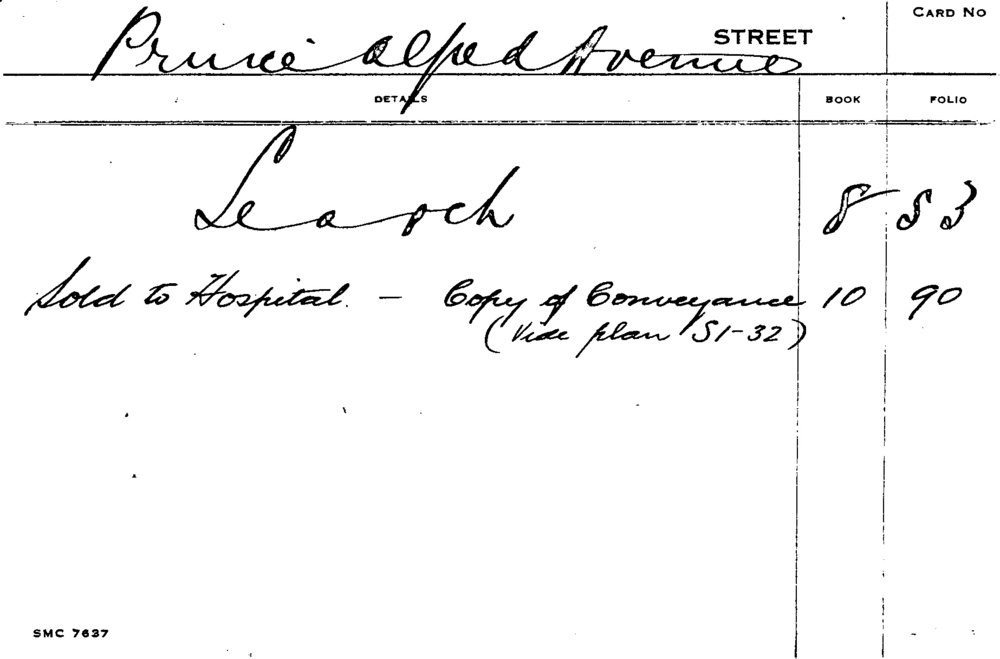 Prince Alfred Avenue STREET CARD No
DETAILS BOOK FOLIO
Search 8 53
Sold to Hospital. - Copy of Conveyance 10 90
(Vide plan S1-32)
SMC 7637